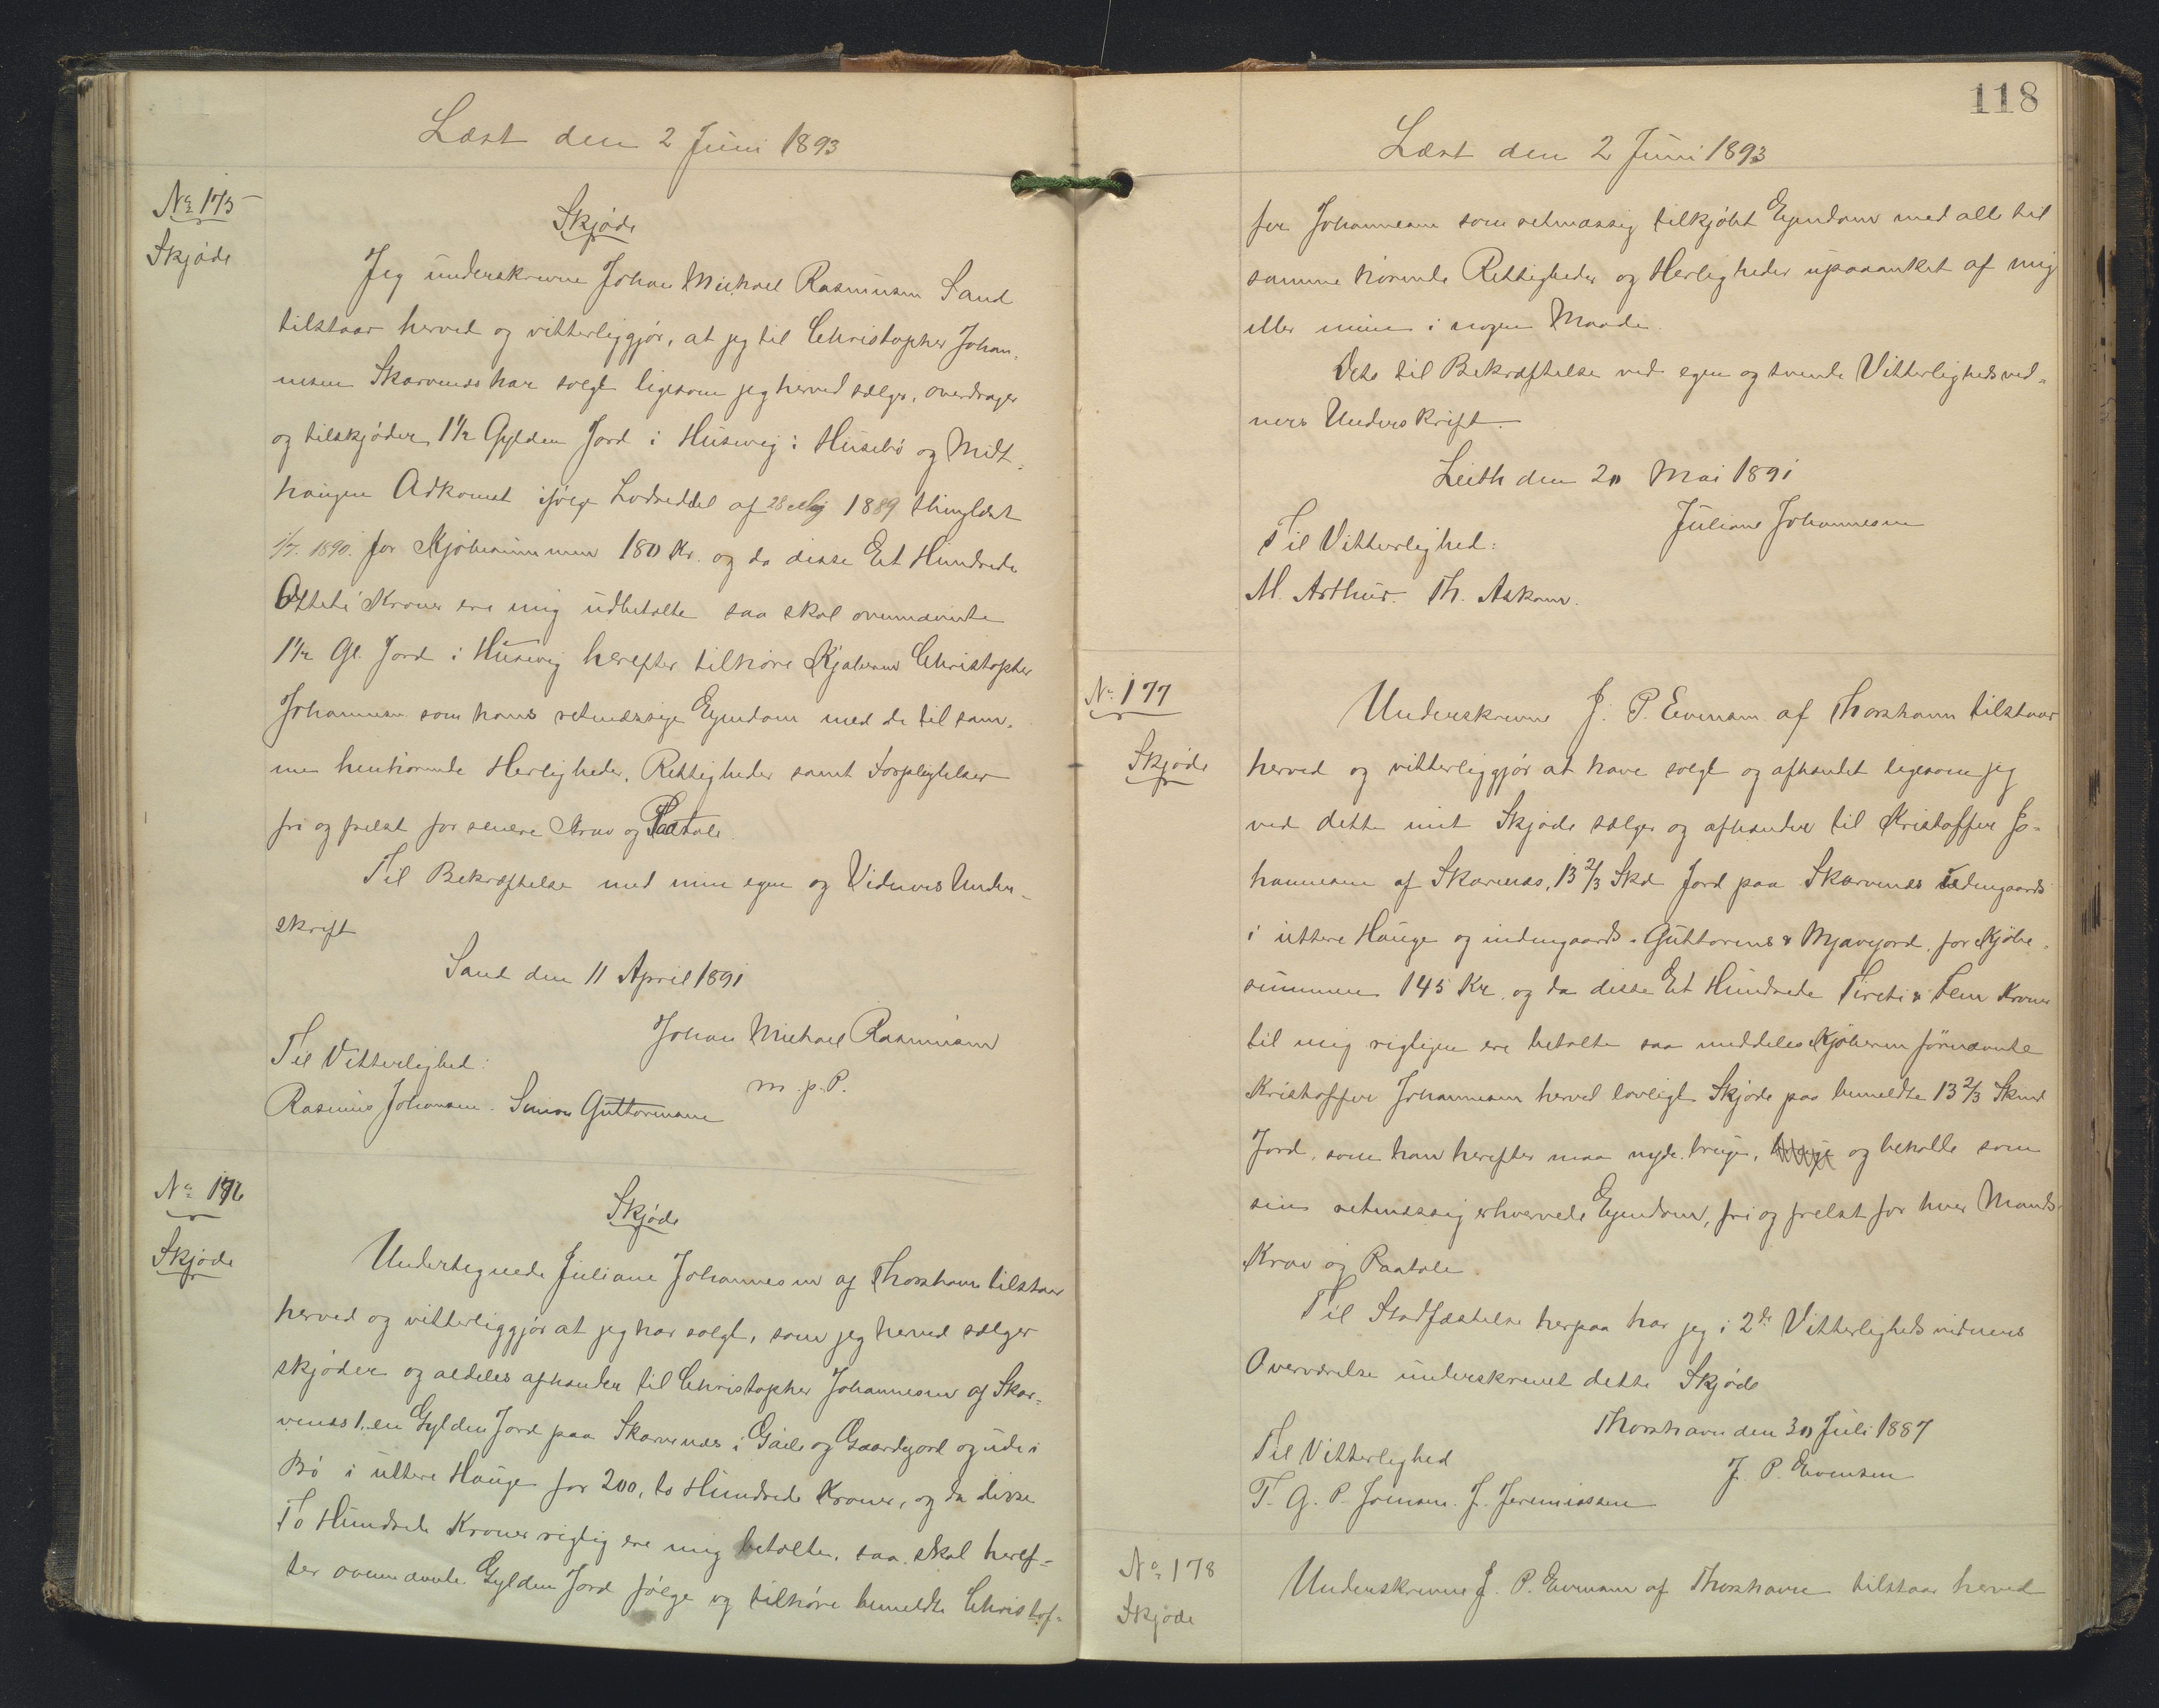 Læst den 2 Juni 1893
No 175
Skjøde
Skjøde
Jeg underskrevne Johan Michael Rasmussen Sand
tilstaar herved og vitterliggjør, at jeg til Christopher Johan-
nesen Skarvenes har solgt ligesom jeg herved sælger, overdrager
og tilskjøder 1½ Gylden Jord i Husevig i Husebø og Midt-
haugen Adkomst ifølge Lodseddel af 28 Maj 1889 thinglæst
1/7. 1890. for Kjøbesummen 180 Kr. og da disse Et Hundrede
Otteti Kroner ere mig udbetalte saa skal ovennævnte
1½ Gl. Jord i Husevig herefter tilhøre Kjøberen Christopher
Johannesen som hans retmæssige Ejendom med de til sam-
me henhørende Herligheder, Rettigheder samt Forpligtelser
fri og frelst for senere Krav og Paatale.
Til Bekræftelse med min egen og Vidners Under-
skrift
Sand den 11 April 1891
Johan Michael Rasmussen
m. p. P.
Til Vitterlighed:
Rasmus Johansen. Simon Guttormsen
No 176
Skjøde
Skjøde
Undertegnede Juliane Johannesen af Thorshavn tilstaar
herved og vitterliggjør at jeg har solgt, som jeg herved sælger
skjøder og aldeles afhænder til Christopher Johannesen af Skar-
venes 1. en Gylden Jord paa Skarvenes i Gaile og Gaardsjord og ude i
Bø i uttere Hauge for 200, to Hundrede Kroner, og da disse
To Hundrede Kroner rigtig ere mig betalte, saa skal heref-
ter ovennævnte Gylden Jord følge og tilhøre bemeldte Christof-
118
Læst den 2 Juni 1893
fer Johannesen som retmæssig tilkjøbt Eyendom med alle til
samme hørende Rettigheder og Herligheder upaaanket af mig
eller mine i nogen Maade.
Dets til Bekræftelse ved egen og tvende Vitterlighedsvid-
ners Underskrift.
Leith den 20 Mai 1891
Juliane Johannesen
Til Vitterlighed:
M. Arthur. Th. Askam.
No 177
Skjøde
Underskrevne J. P. Evensen af Thorshavn tilstaar
herved og vitterliggjør at have solgt og afhændet ligesom jeg
ved dette mit Skjøde sælger og afhænder til Kristoffer Jo-
hannesen af Skarvenes, 13 2/3 Skd Jord paa Skarvenes Udengaards
i uttere Hauge og indengaards. Guttorms & Mjavejord. for Kjøbe-
summen 145 Kr. og da disse Et Hundrede Firti & Fem Kroner
til mig rigtigen ere betalte saa meddeles Kjøberen førnævnte
Kristoffer Johannesen herved lovligt Skjøde paa bemeldte 13 2/3 Skind
Jord, som han herefter maa nyde. bruge, og beholde som
sin retmæssig erhvervede Eyendom, fri og frelst for hver Mands
Krav og Paatale.
Til Stadfæstelse herpaa har jeg i 2de Vitterlighedsvidners
Overværelse underskrevet dette Skjøde
Thorshavn den 30 Juli 1887
J. P. Evensen
Til Vitterlighed
T. G. P. Joensen. J. Jeremiassen
No 178
Skjøde
Underskrevne J. P. Evensen af Thorshavn tilstaar herved